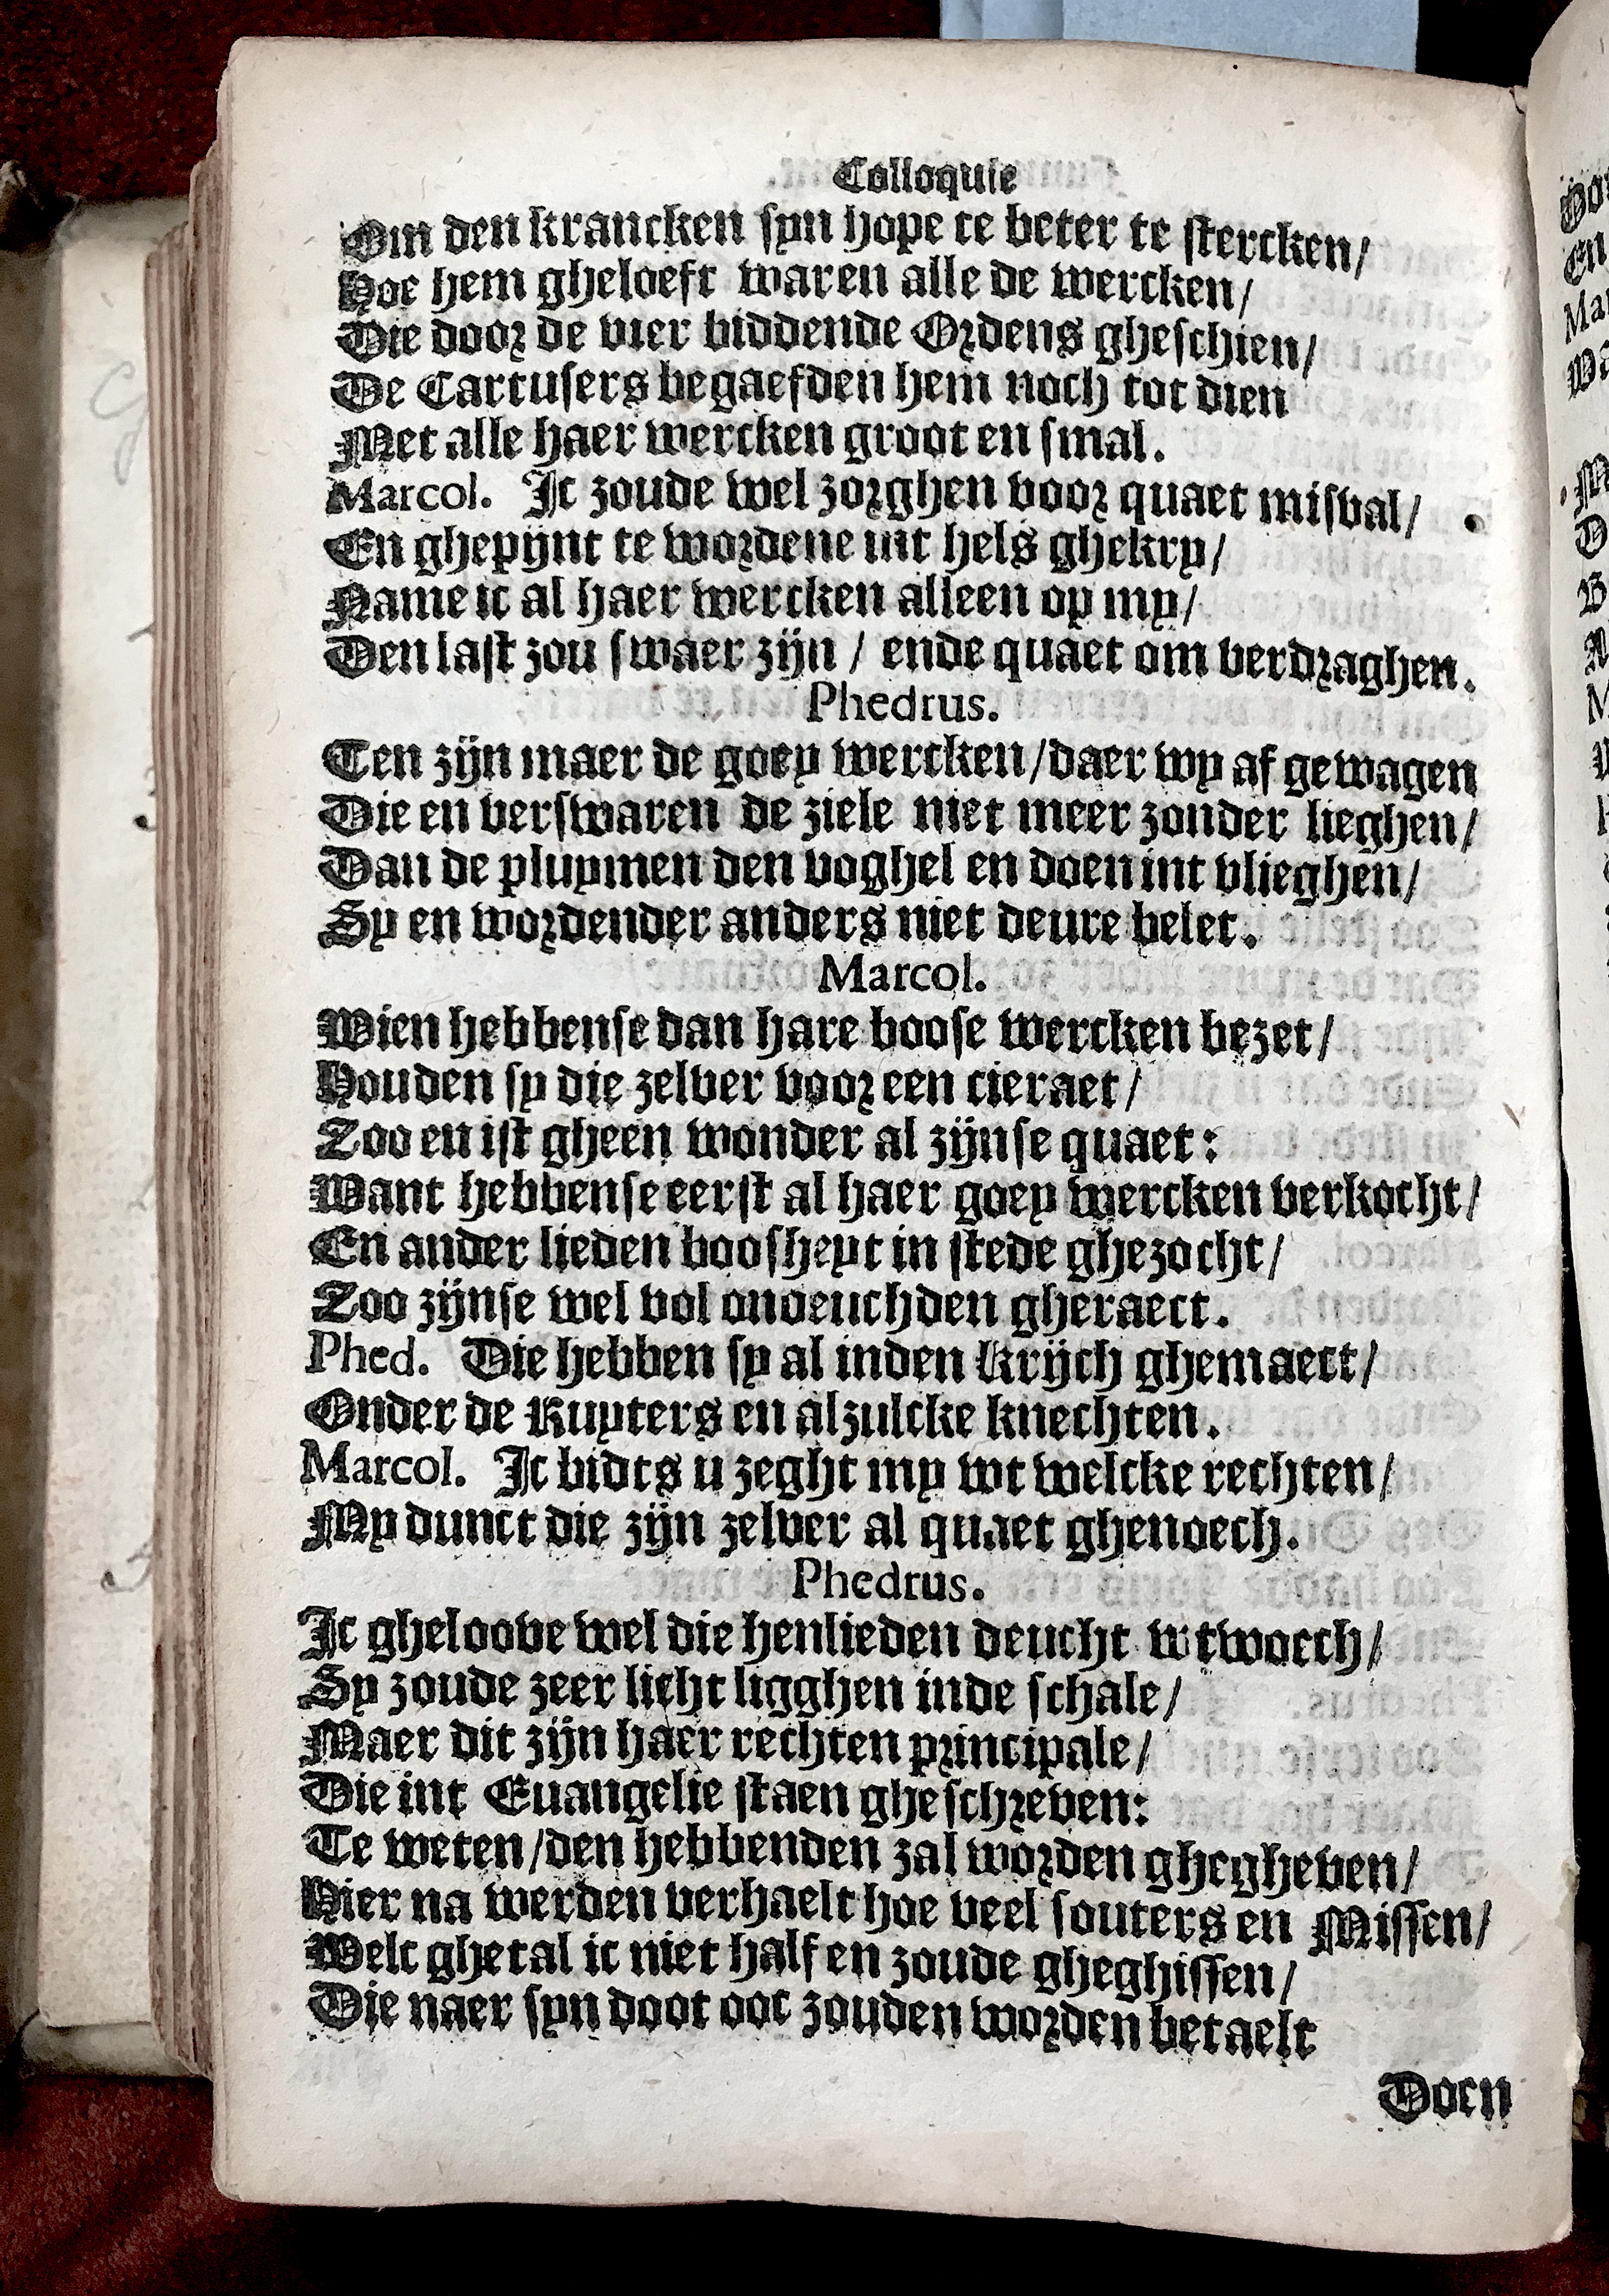 Colloquie
Om den krancken syn hope te beter te stercken/
Hoe hem gheloeft waren alle de wercken/
Die door de vier biddende Ordens gheschien/
De Cartusers begaefden hem noch tot dien
Met alle haer wercken groot en smal.
Marcol. Ic zoude wel zorghen voor quaet misval/
En ghepijnt te wordene int hels ghekry/
Name ic al haer wercken alleen op my/
Den last zou swaer zijn / ende quaet om verdraghen.
Phedrus.
Ten zijn maer de goey wercken/daer wy af gewagen
Die en verswaren de ziele niet meer zonder lieghen/
Dan de pluymen den voghel en doen int vlieghen/
Sy en wordender anders niet deure belet.
Marcol.
Wien hebbense dan hare boose wercken bezet/
Houden sy die zelver voor een cieraet/
Zoo en ist gheen wonder al zijnse quaet:
Want hebbense eerst al haer goey wercken verkocht/
En ander lieden boosheyt in stede ghezocht/
Zoo zijnse wel vol ondeuchden gheraect.
Phed. Die hebben sy al inden Krijch ghemaect/
Onder de Ruyters en alzulcke knechten.
Marcol. Ic bidts u zeght my wt welcke rechten/
My dunct die zijn zelver al quaet ghenoech.
Phedrus.
Ic gheloove wel die henlieden deucht wtwoech/
Sy zoude zeer licht ligghen inde schale/
Maer dit zijn haer rechten principale/
Die int Euangelie staen gheschreven:
Te weten/den hebbenden zal worden ghegheven/
Hier na werden verhaelt hoe veel souters en Missen/
Welc ghetal ic niet half en zoude gheghissen/
Die naer syn doot ooc zouden worden betaelt
Doen